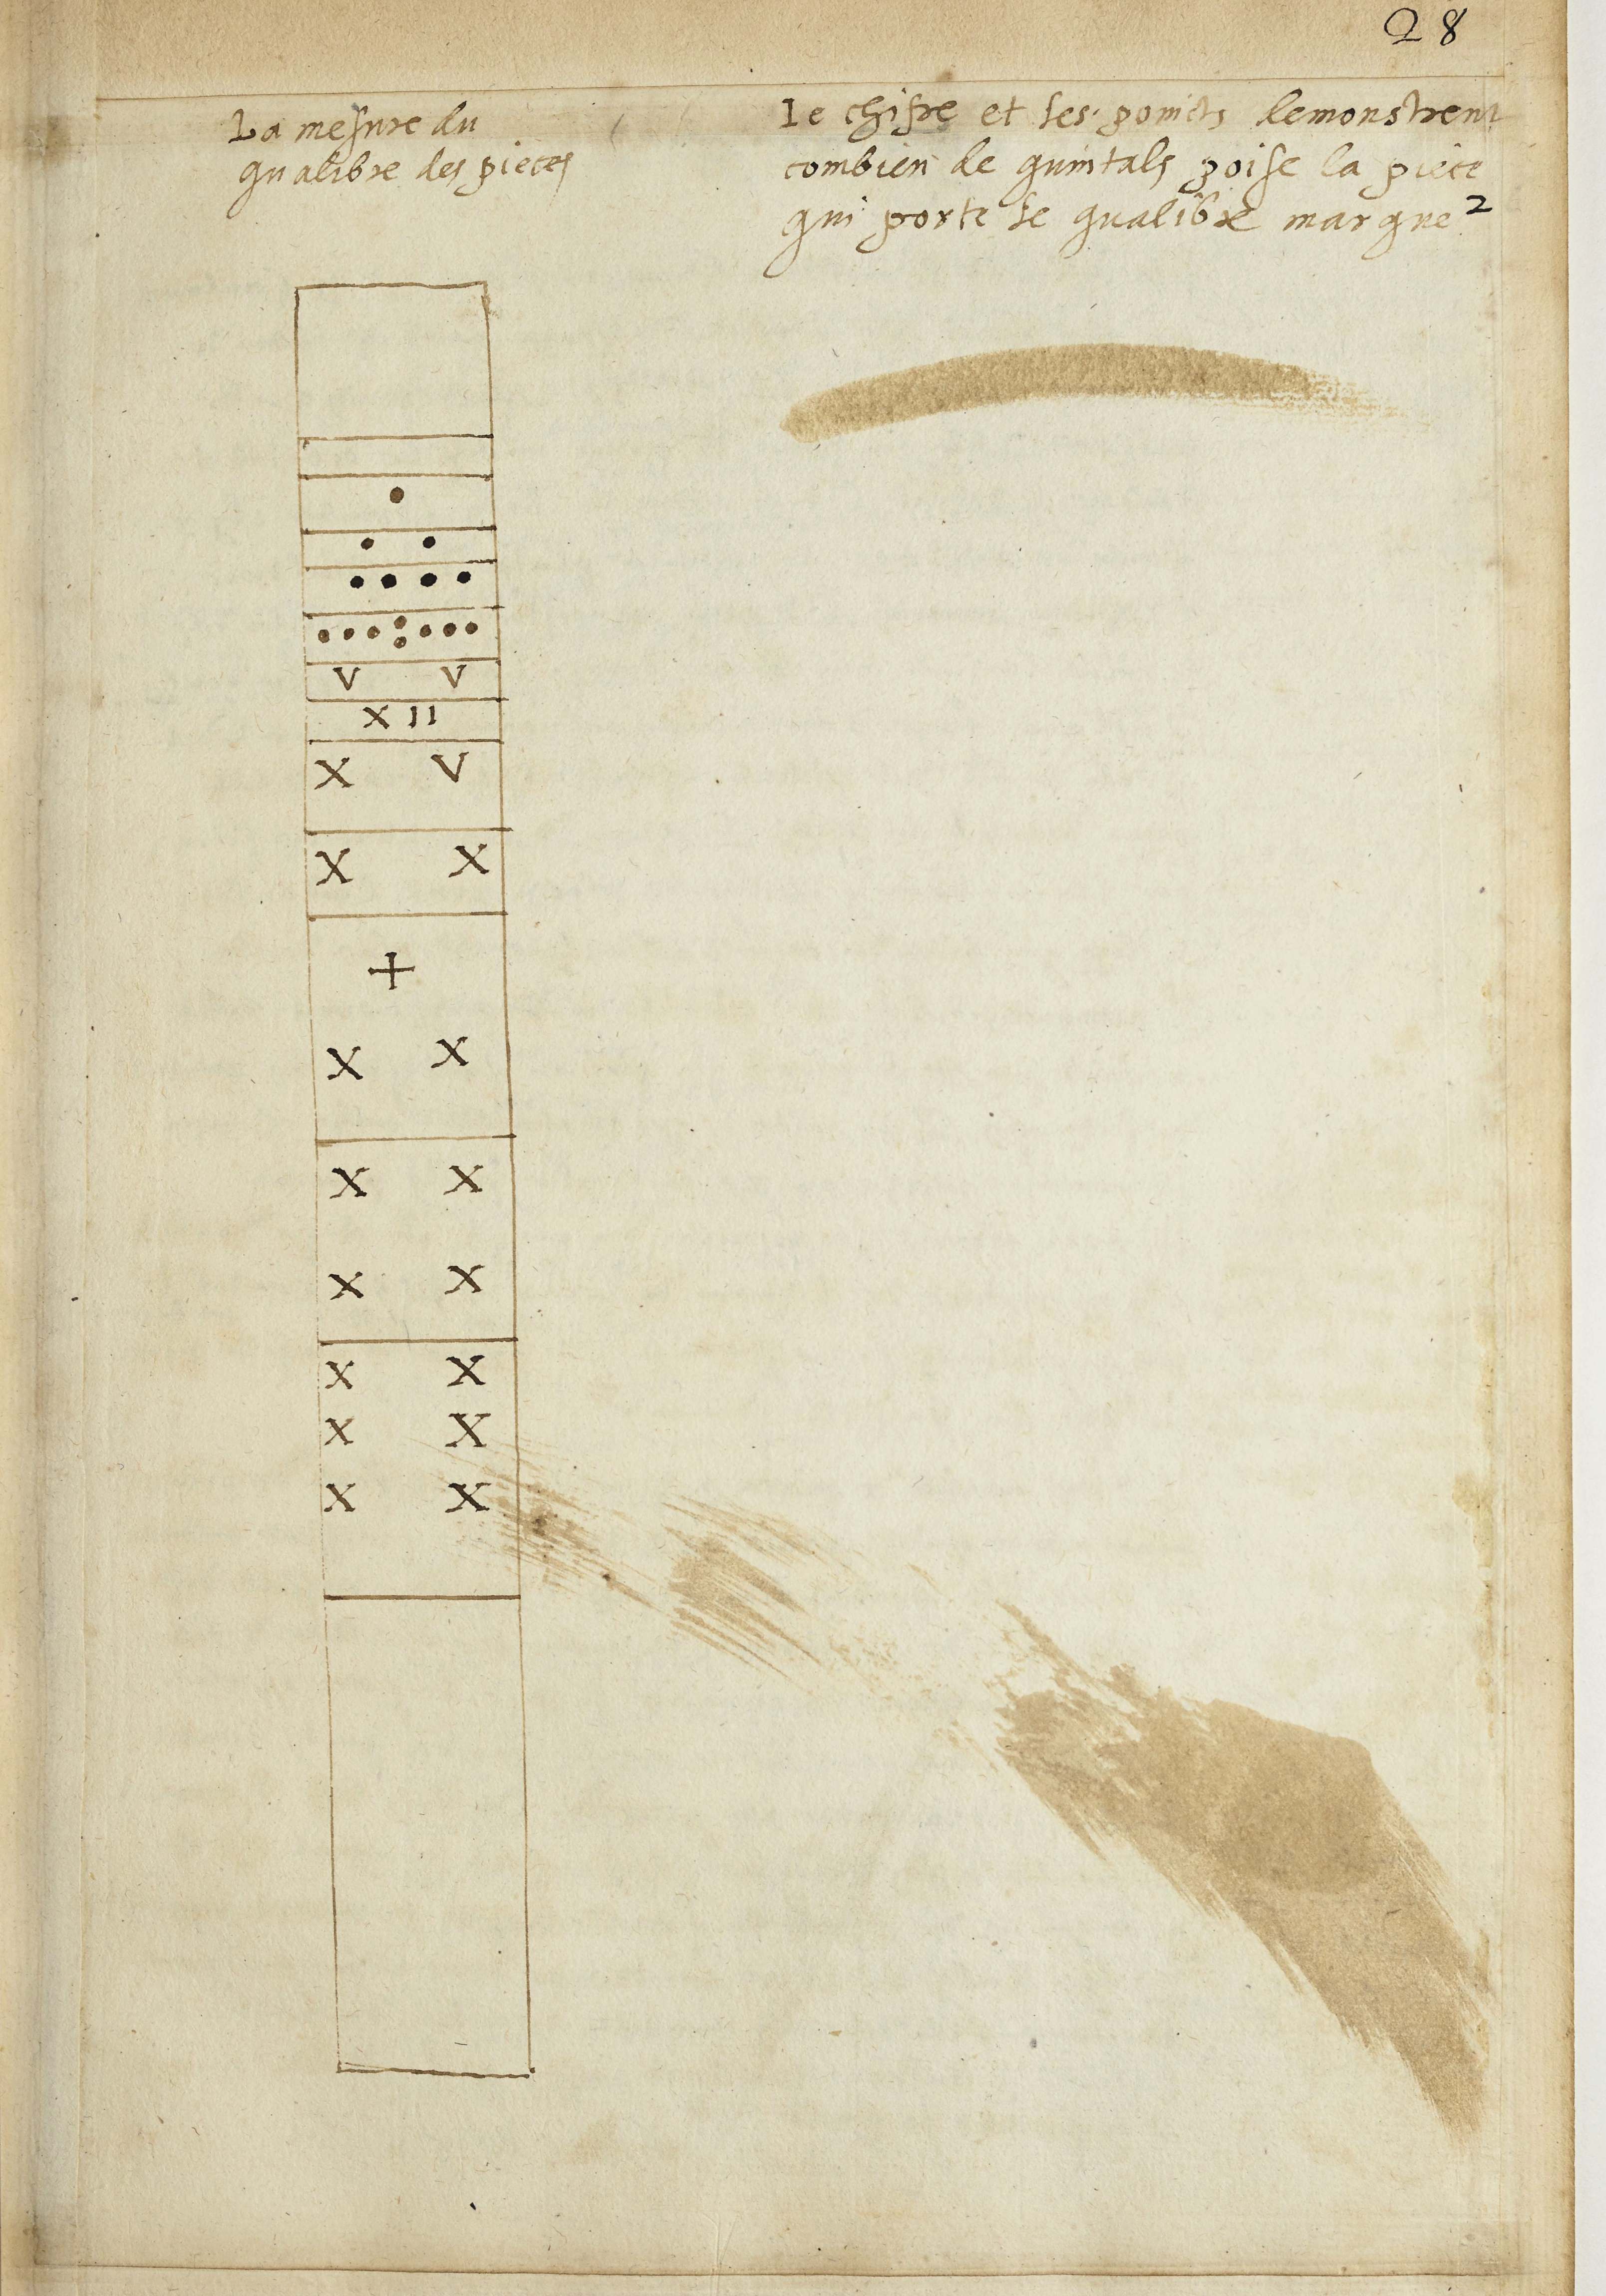 28
La mesure du
qualibre des pieces
Le chifre et les poincts demonstrent
combien de quintals poise la piece
qui porte le qualibre marque
V V
XII
X V
X X
+
X X
X X
X X
X X
X X
X X